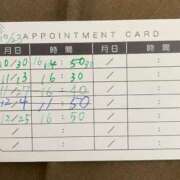 APPOINTMENT CARD
月日 時間 月日 時間
10/30 16:50
11/13 16:30 / :
11/27 16:40 / :
12/4 11:50 / :
12/25 16:50 / :
/ : / :